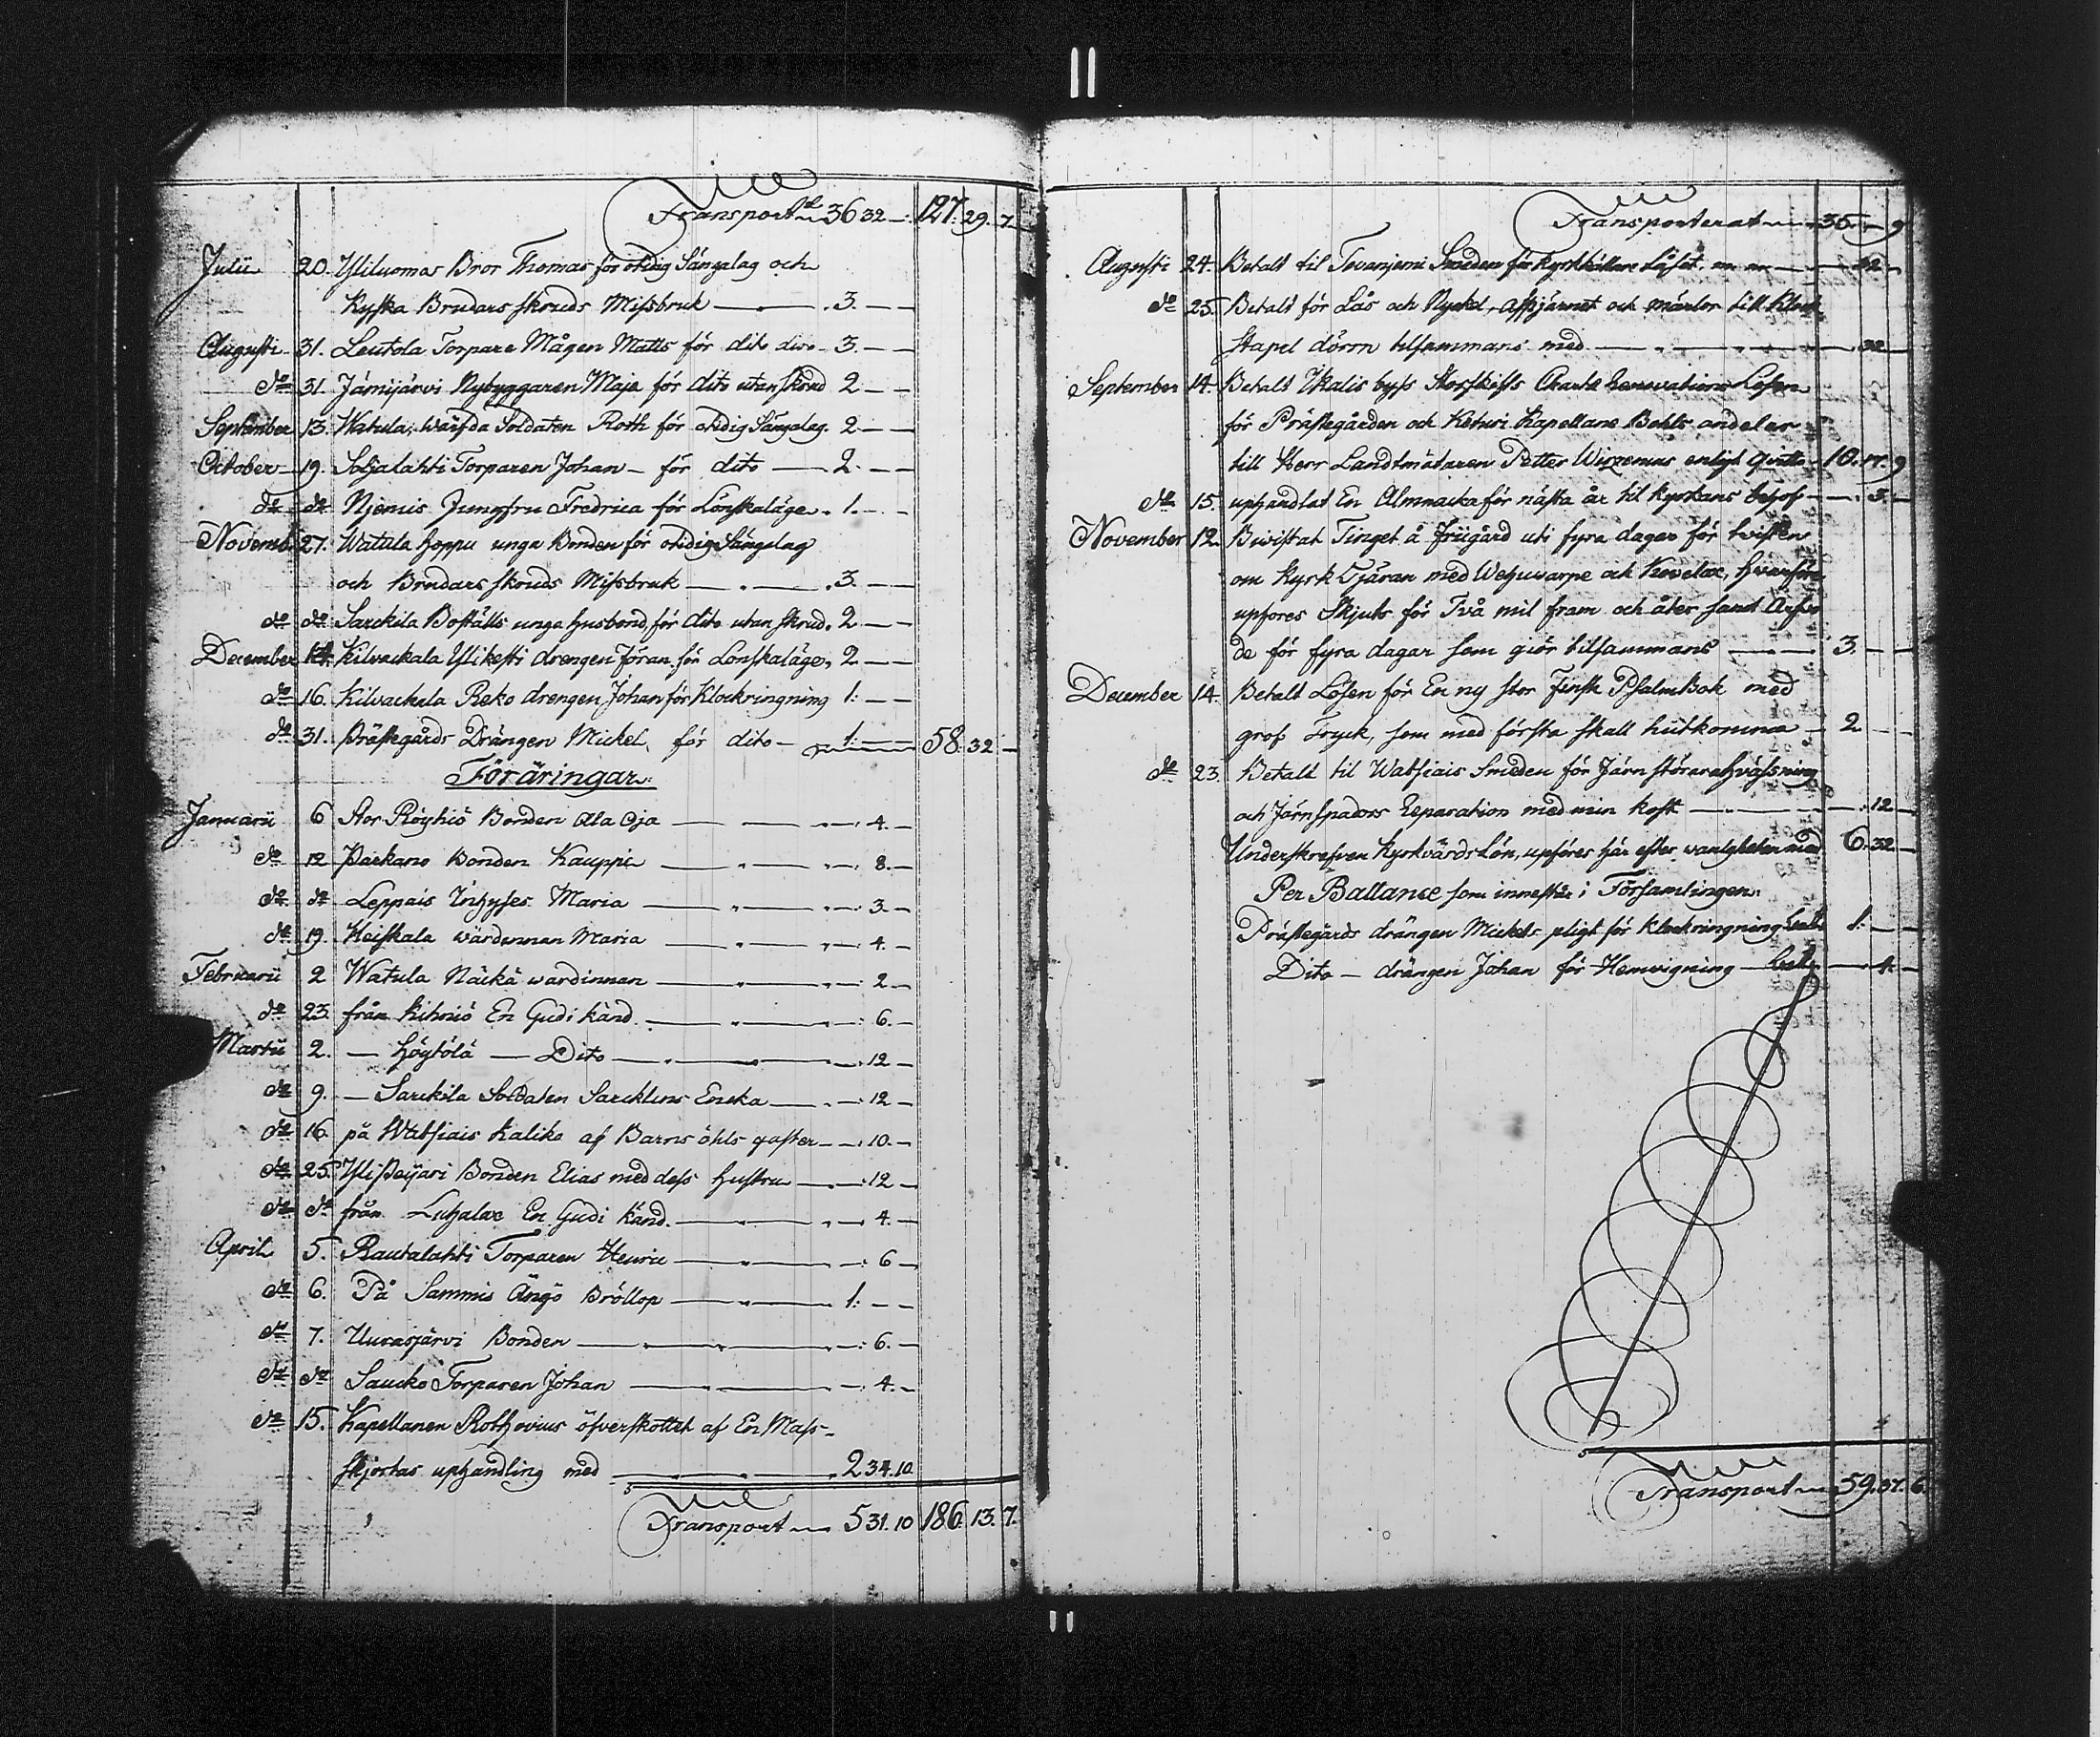 Transport 36 32 — 127. 29. 7.
Julii 20. Yliluomas Bror Thomas för otidig Sängalag och
Kyska Brudars skruds Missbruk — 3. — —
Augusti 31. Leutola Torpare Mågen Matts för dito dito 3. — —
do 31. Jämijärvi Nybyggaren Maja för dito utan skrud 2 — —
September 13. Watula, wärfda Soldaten Roth för otidig Sängalag. 2 — —
October 19. Soljalahti Torparen Johan — för dito — 2. — —
do do Njemis Jungfru Fredrica för Lönskaläge. 1. — —
Novemb. 27. Watula Hoppu unga Bonden för otidig Sängalag
och Brudars skruds Missbruk — 3. — —
do do Sarckila Boställs unga husbond, för dito utan skrud. 2 — —
December 14. Kilvackala Ylikesti drengen Jöran för Lönskaläge, 2 — —
do 16. Kilvackala Reko drengen Johan för Klockringning 1: — —
do 31. Prästegårds Drängen Mickel, för dito — 1: — — 58. 32 —
Föräringar.
Januarii 6 Stor Röyhiö Bonden Ala Oja — 4. —
do 12 Parkano Bonden Kauppi — 8. —
do do Leppais Inhyses Maria — 3. —
do 19. Heiskala wärdinnan Maria — 4. —
Februarii 2 Watula Näckä wardinnan — 2 —
do 23. från Kihniö En Gudi känd. — 6. —
Martii 2. — Höytölä — Dito — 12 —
do 9. — Sarckila Soldaten Sarcklins Encka — 12 —
do 16. på Watsiais Kaliko af Barns öhls gäster — 10. —
do 25. Yli Peijari Bonden Elias med dess hustru — 12 —
do do från Luhalax En Gudi känd. — 4. —
April 5. Rautalahti Torparen Henric — 6 —
do 6. På Sammis Ängö Bröllop — 1: — —
do 7. Uurasjärvi Bonden — 6. —
do do Saucko Torparen Johan — 4. —
do 15. Kapellanen Rothovius öfverskottet af En Mass-
skjortas uphandling med — 2 34. 10
Transport 5 31. 10 186. 13. 7.
Transporterat 35. — 9
Augusti 24. Betalt til Tevanjemi Smeden för Kyrkkällare Låset.
do 25. Betalt för Lås och Nyckel, och märlor till Klock
Stapel dörrn tilsammans med — 32
September 14. Betalt Ikalis byss Storskifts Charte Renovations Lösen
för Prästegården och Keturi Kapellans Bohls andelar
till Herr Landtmätaren Petter Wirzenius enligt qvitto 10. 17. 9
do 15. uphandlat En Almnacka för nästa år til kyrkans behof — 3. —
November 12. Bivistat Tinget å Friigård uti fyra dagar för tvisten
om Kyrk Tjäran med Wehuvarpe och Kovelax, hvarföre
upföres Skjuts för Två mil fram och åter samt Arfvo
de för fyra dagar som giör tilsammans — 3. — —
December 14. Betalt Lösen för En ny stor Finsk Psalm Bok med
grof Tryck, som med första skall hiitkomma — 2. — —
do 23. Betalt til Watsiais Smeden för Järn hvässning
och Järnspadors Reparation med min kost — 12 —
Underskrefven Kyrkvärds Lön, upföres här efter vanligheten med 6. 32 —
Per Ballance som innestår i Församlingen.
Prästegårds drängen Mickels pligt för Klockringning 1: — —
Dito — drängen Johan för Hemvigning — 4. —
Transport 59. 37. 6.